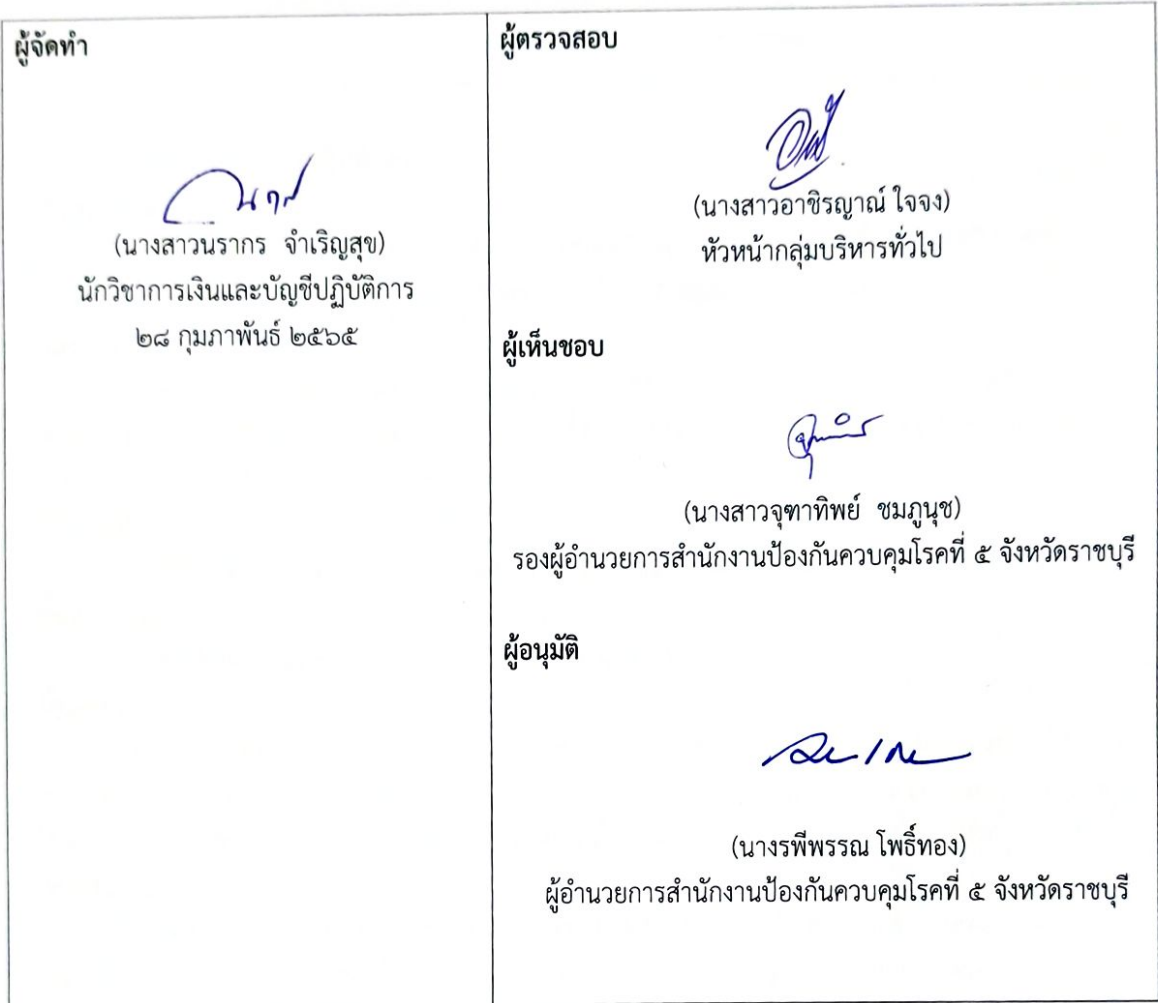 ผู้จัดทำ
(นางสาวนรากร จำเริญสุข)
นักวิชาการเงินและบัญชีปฏิบัติการ
๒๘ กุมภาพันธ์ ๒๕๖๕
ผู้ตรวจสอบ
(นางสาวอาชิรญาณ์ ใจจง)
หัวหน้ากลุ่มบริหารทั่วไป
ผู้เห็นชอบ
(นางสาวจุฑาทิพย์ ชมภูนุช)
รองผู้อำนวยการสำนักงานป้องกันควบคุมโรคที่ ๕ จังหวัดราชบุรี
ผู้อนุมัติ
(นางรพีพรรณ โพธิ์ทอง)
ผู้อำนวยการสำนักงานป้องกันควบคุมโรคที่ ๕ จังหวัดราชบุรี